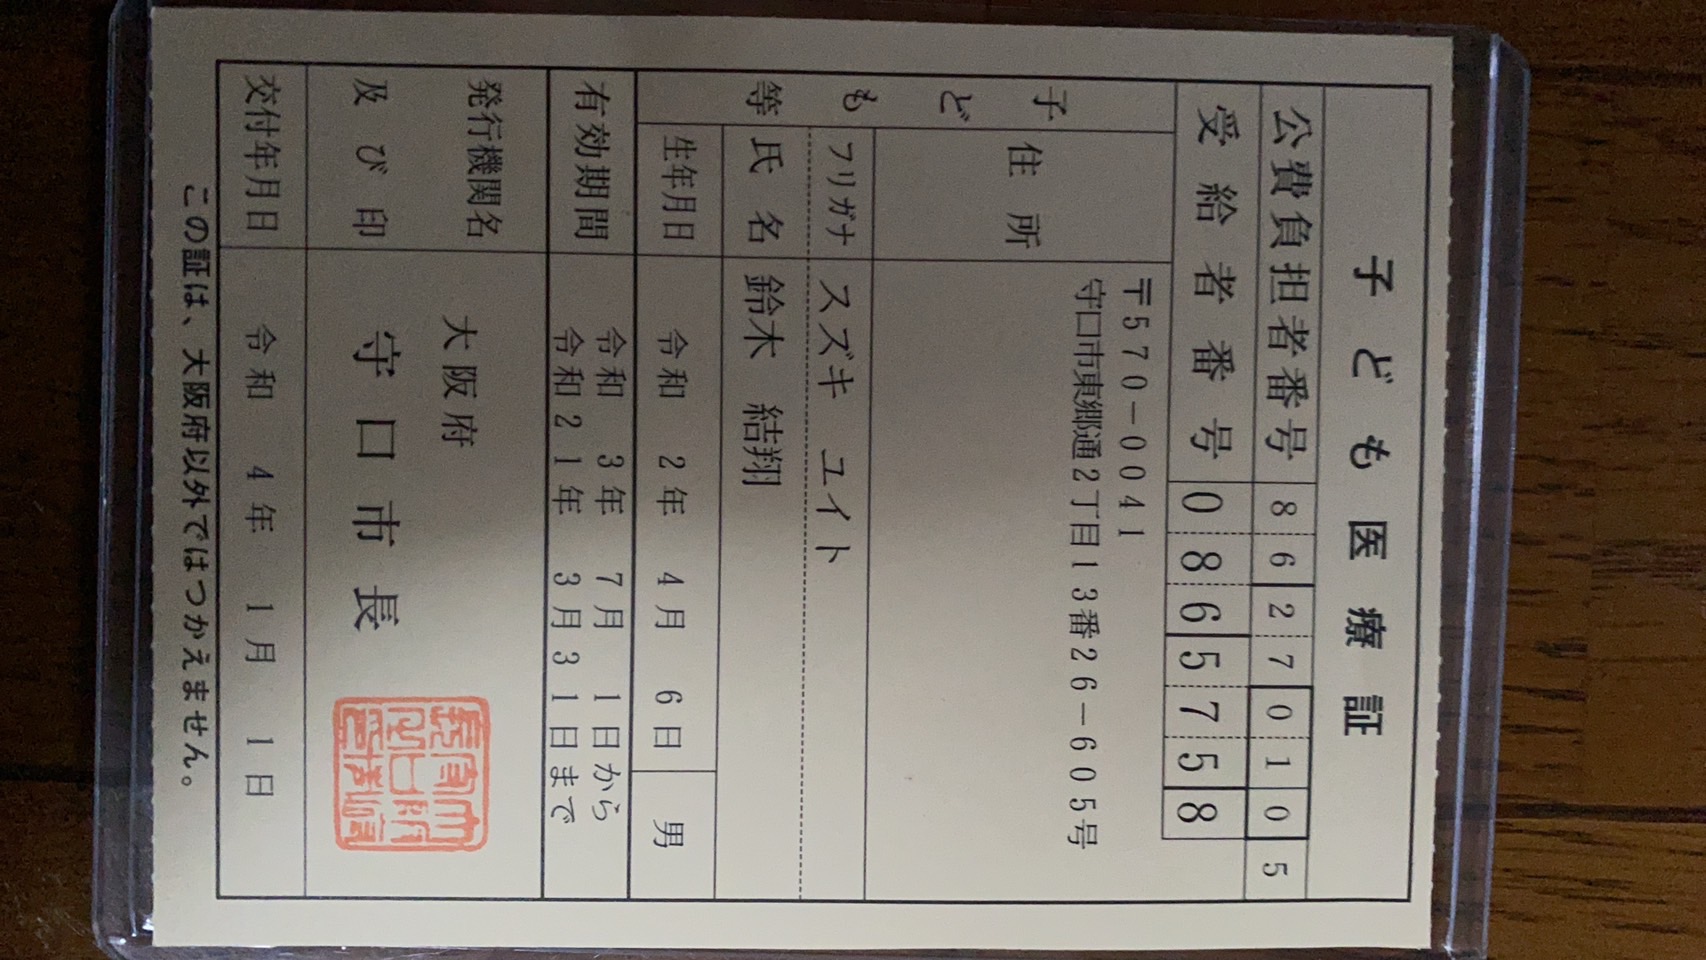 子ども医療証
公費負担者番号 86270105
受給者番号 0865758
子ども等
住所 〒570-0041
守口市東郷通2丁目13番26-605号
フリガナ スズキ ユイト
氏名 鈴木 結翔
生年月日 令和 2年 4月 6日 男
有効期間 令和 3年 7月 1日から
令和21年 3月31日まで
発行機関名及び印 大阪府
守口市長
交付年月日 令和 4年 1月 1日
この証は、大阪府以外ではつかえません。